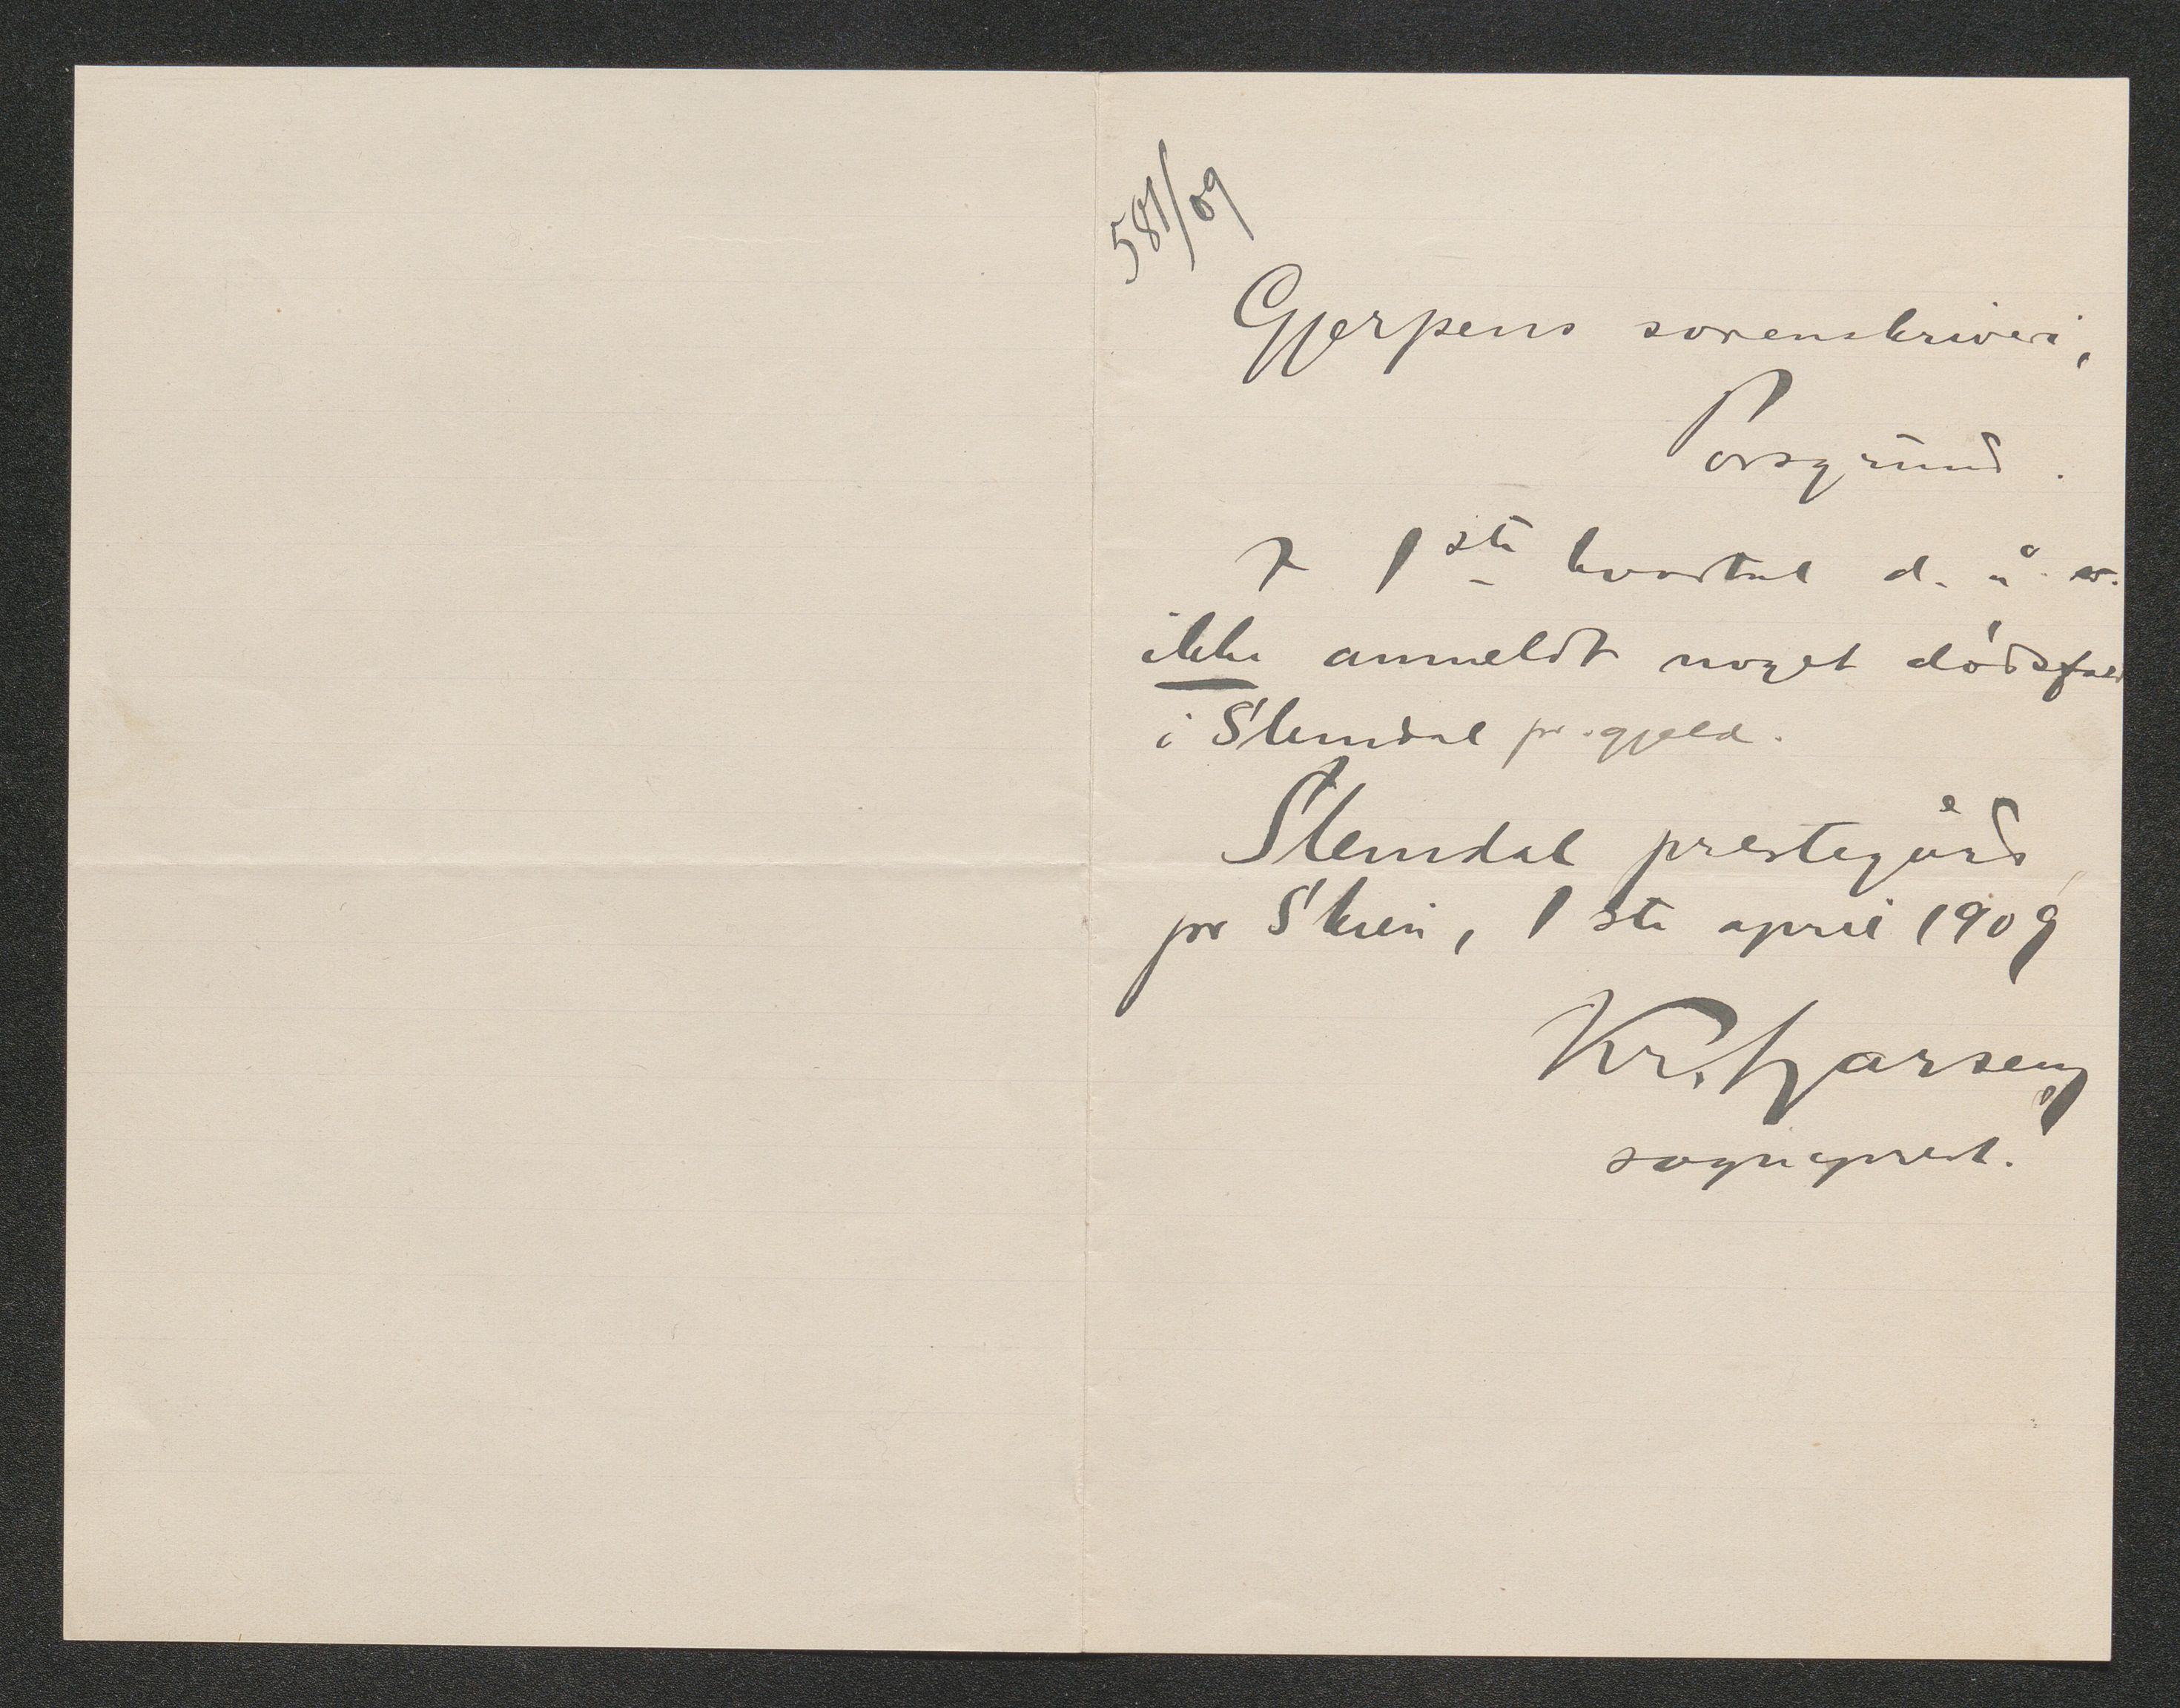 581/09
Gjerpens sorenskriveri,
Porsgrund.
I 1ste kvartal d. å. er
ikke anmeldt noget dødsfald
i Slemdal pr.gjeld.
Slemdal prestegård
pr Skien, 1ste april 1909
Kr. Larsen
sogneprest.